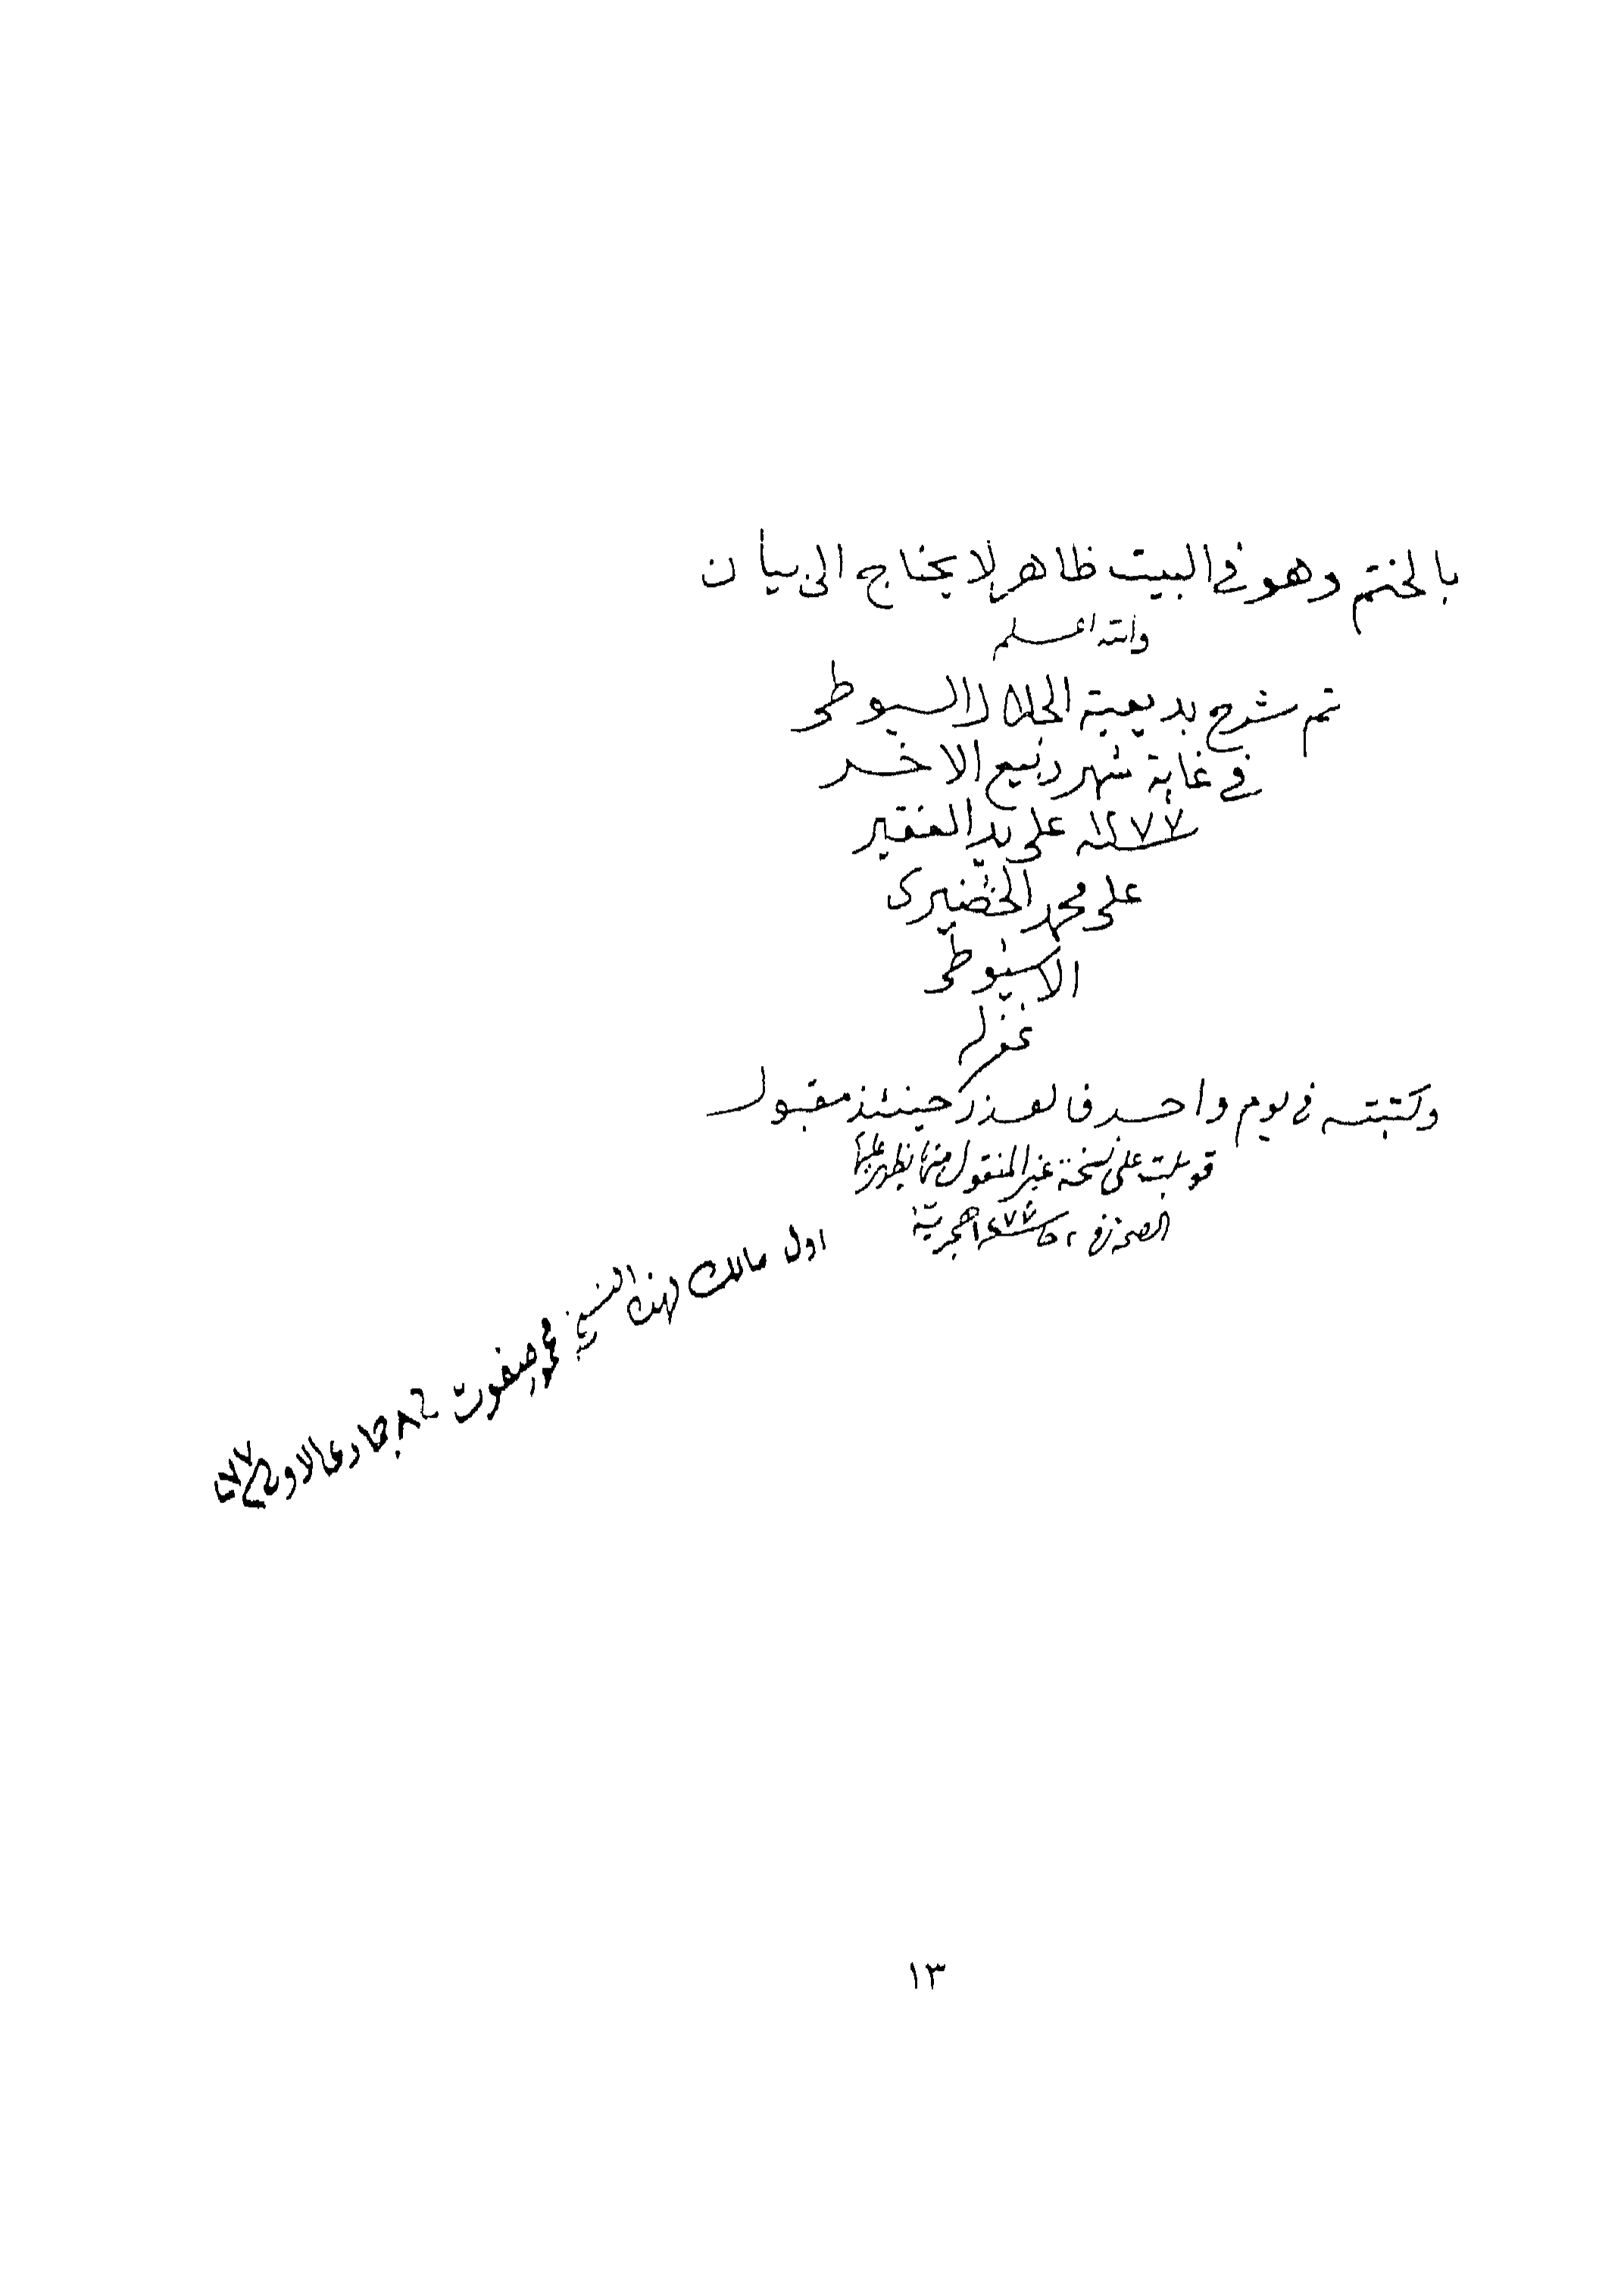 بالختم وهو فى البيت ظاهر لا يحتاج الى بيان
والله اعلم
تم شرح بديعية الجلال السيوطى
فى غاية شهر ربيع الاخر
١٢٧٧ على يد الفقير
على محمد الخضيرى
الاسيوطى
غفر له
وكتبته فى يوم واحد فالعذر حينئذ مقبول
قوبلت على نسخة غير المنقول منها يظهر عليها
الصحة فى ١٢٧٧ هجرية
اول مالك لهذه النسخة محمود صفوت ٢٨ جمادى الاول ٧٧
١٣